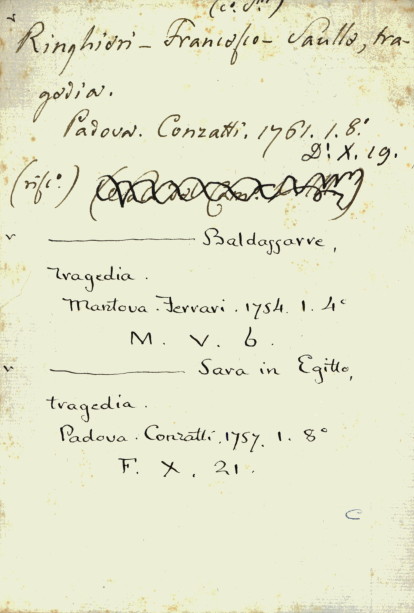 (c. S.)
Ringhieri - Francesco - Saulle, tra-
gedia.
Padova. Conzatti. 1761. 1. 8.°
D. X. 19.
(rifo.)
v ——— Baldassarre,
tragedia.
Mantova. Ferrari. 1754. 1. 4°
M. V. 6.
v ——— Sara in Egitto,
tragedia.
Padova. Conzatti. 1757. 1. 8°
F. X. 21.
C